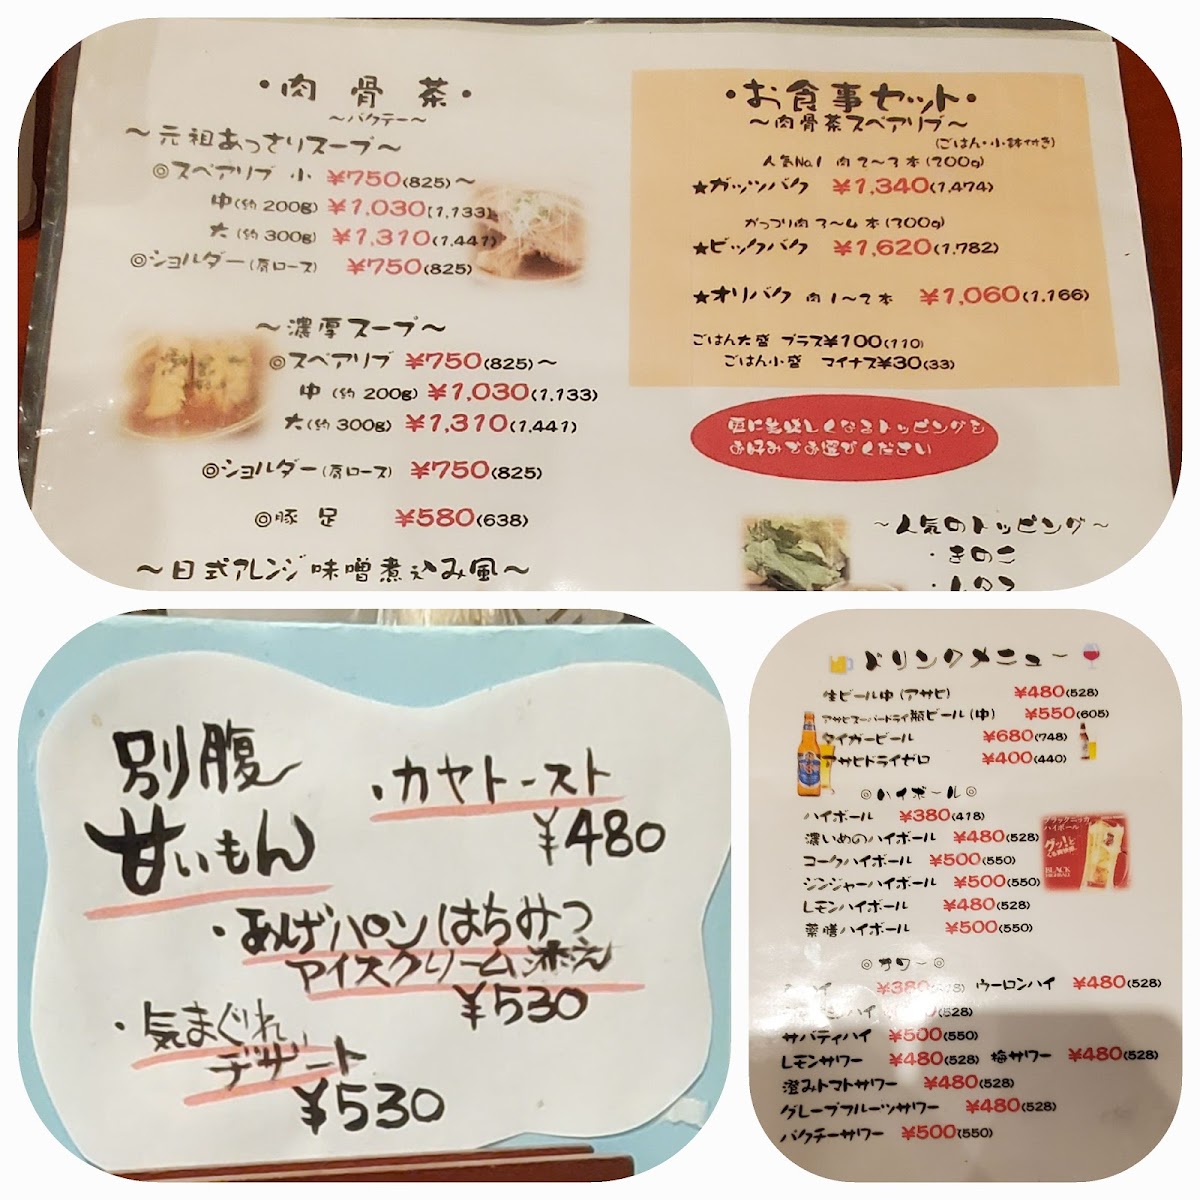 ・肉骨茶・
～バクテー～
～元祖あっさりスープ～
◎スペアリブ 小 ¥750(825)～
中(約200g) ¥1,030(1,133)
大(約300g) ¥1,310(1,441)
◎ショルダー(肩ロース) ¥750(825)
～濃厚スープ～
◎スペアリブ ¥750(825)～
中(約200g) ¥1,030(1,133)
大(約300g) ¥1,310(1,441)
◎ショルダー(肩ロース) ¥750(825)
◎豚足 ¥580(638)
～日式アレンジ味噌煮込み風～
・お食事セット・
～肉骨茶スペアリブ～
(ごはん・小鉢付き)
人気No.1 肉2～3本(200g)
★ガッツバク ¥1,340(1,474)
がっつり肉3～4本(300g)
★ビックバク ¥1,620(1,782)
★オリバク 肉1～2本 ¥1,060(1,166)
ごはん大盛 プラス¥100(110)
ごはん小盛 マイナス¥30(33)
更に美味しくなるトッピングを
お好みでお選びください
～人気のトッピング～
・きのこ
・レタス
別腹
甘いもん
・カヤトースト
¥480
・あげパンはちみつ
アイスクリーム添え
¥530
・気まぐれ
デザート
¥530
ドリンクメニュー
生ビール中(アサヒ) ¥480(528)
アサヒスーパードライ瓶ビール(中) ¥550(605)
タイガービール ¥680(748)
アサヒドライゼロ ¥400(440)
◎ハイボール◎
ハイボール ¥380(418)
濃いめのハイボール ¥480(528)
コークハイボール ¥500(550)
ジンジャーハイボール ¥500(550)
レモンハイボール ¥480(528)
薬膳ハイボール ¥500(550)
ブラックニッカ
ハイボール
グッ!と
くる爽快感。
BLACK
HIGHBALL
◎サワー◎
ハイ ¥380 ウーロンハイ ¥480(528)
ハイ (528)
サバティハイ ¥500(550)
レモンサワー ¥480(528) 梅サワー ¥480(528)
澄みトマトサワー ¥480(528)
グレープフルーツサワー ¥480(528)
バクテーサワー ¥500(550)